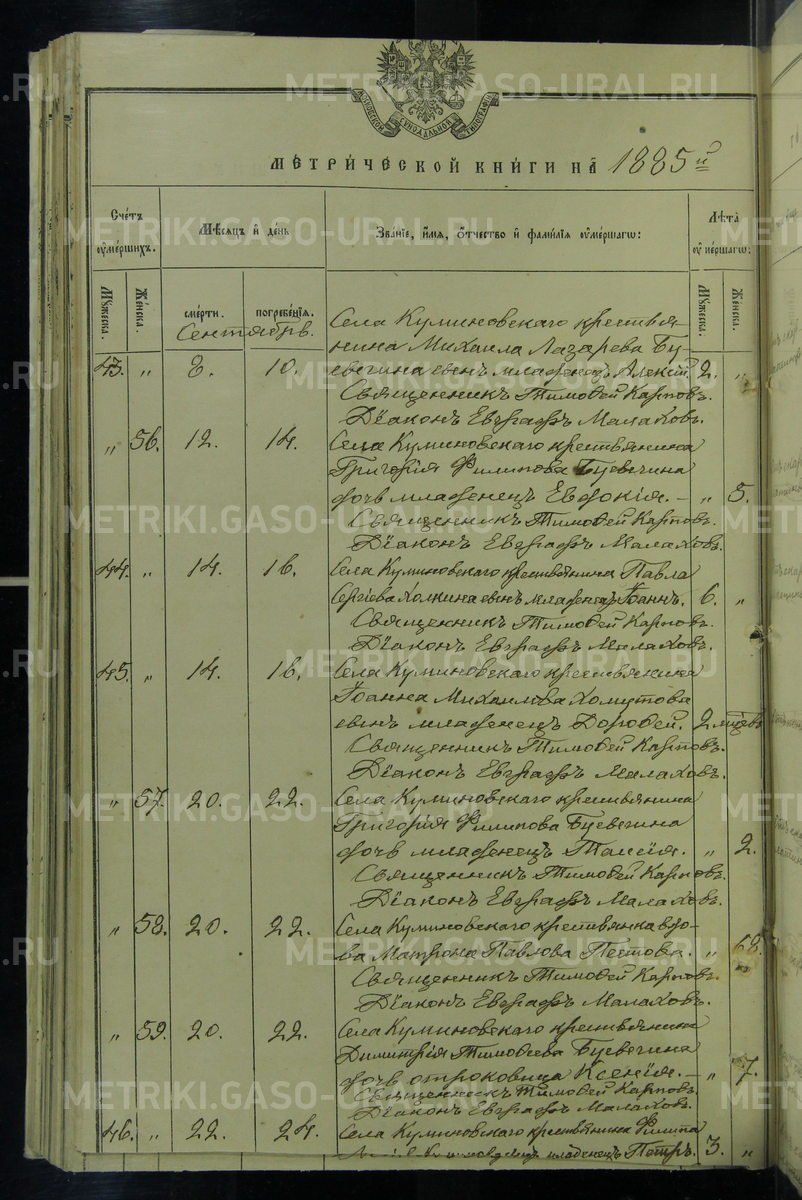 МОСКОВСКОЙ СИНОДАЛЬНОЙ ТИПОГРАФІИ
МЕТРИЧЕСКОЙ КНИГИ НА 1885й
Счетъ умершихъ. Мѣсяцъ и день Званіе, имя, отчество и фамилія умершаго: Лѣта умершаго:
Мужеска. Женска. смерти. погребенія. Мужеска. Женска.
Сентябрь.
Села Куминовскаго крестья-
нина Михаила Лазарева Бу-
43. „ 8. 10. евичина сынъ младенецъ Алексій. 2. „
Священникъ Тимоѳей Карповъ.
Діаконъ Евграфъ Малаховъ.
„ 56. 12. 14. Села Куминовскаго крестьянина
Григорія Филипова Буевичина
дочь младенецъ Евдокія. — „ 5.
Священникъ Тимоѳей Карповъ.
Діаконъ Евграфъ Малаховъ.
44. „ 14. 16. Села Куминовскаго крестьянина Павла
Сергіева Холкина сынъ младенецъ Іоаннъ. 6. „
Священникъ Тимоѳей Карповъ.
Діаконъ Евграфъ Малаховъ.
45. „ 14. 16. Села Куминовскаго крестьянина
Іоанна Михаилова Хомутова
сынъ младенецъ Дороѳей. 2 мѣсяцевъ
Священникъ Тимоѳей Карповъ.
Діаконъ Евграфъ Малаховъ.
„ 57. 20. 22. Села Куминовскаго крестьянина
Григорія Филипова Буевичина
дочь младенецъ Таисія. „ 2.
Священникъ Тимоѳей Карповъ.
Діаконъ Евграфъ Малаховъ.
„ 58. 20. 22. Села Куминовскаго крестьянка вдо-
ва Матрона Павлова Пестова. „ 68.
Священникъ Тимоѳей Карповъ.
Діаконъ Евграфъ Малаховъ.
„ 59. 20. 22. Села Куминовскаго крестьянина
Димитрія Тимоѳеева Буевичина
дочь отроковица Ксенія. — „ 7.
Священникъ Тимоѳей Карповъ.
Діаконъ Евграфъ Малаховъ.
46. „ 22. 24. Села Куминовскаго крестьянина Филипа
младенецъ Петръ. 3. „
METRIKI.GASO-URAL.RU